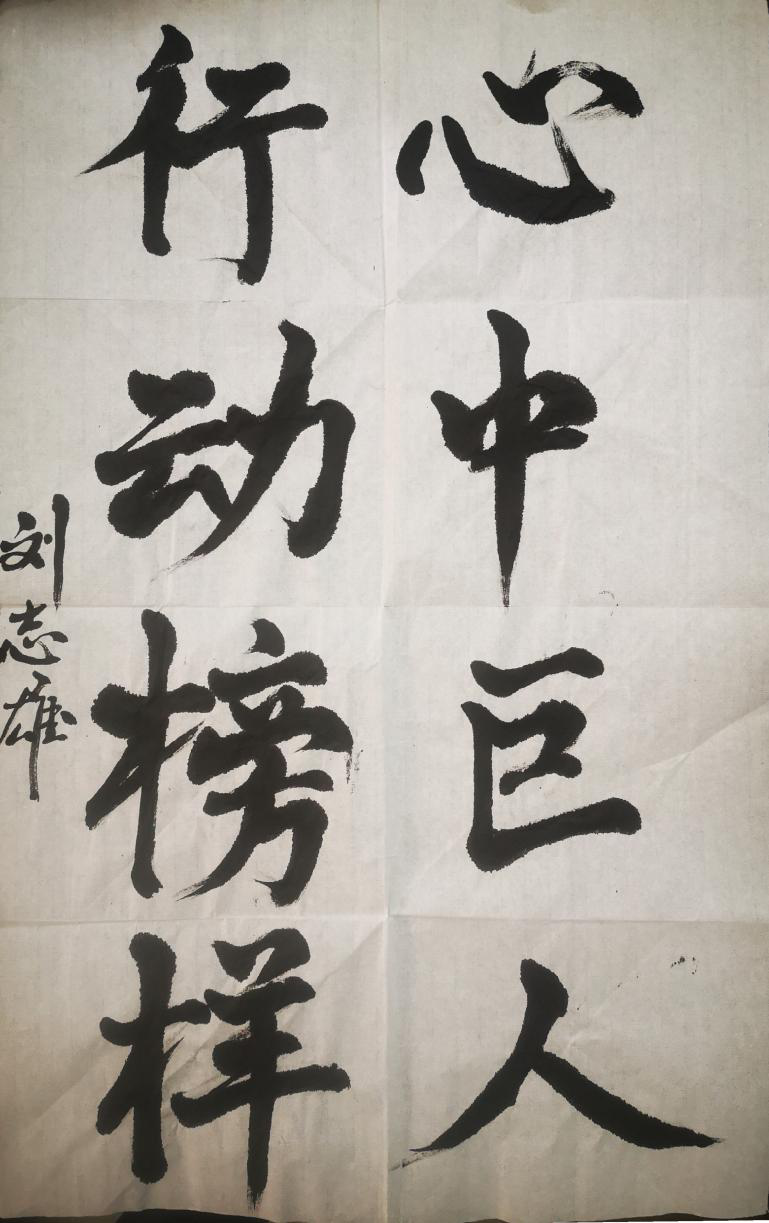 心中巨人
行动榜样
刘志雄